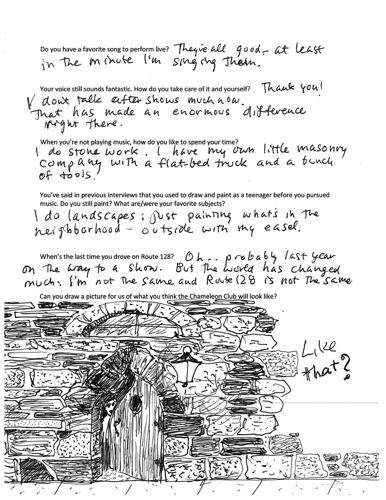 Do you have a favorite song to perform live? They're all good,- at least
in the minute I'm singing them.
Your voice still sounds fantastic. How do you take care of it and yourself? Thank you!
I don't talk after shows much now.
That has made an enormous difference
right there.
When you're not playing music, how do you like to spend your time?
I do stone work. I have my own little masonry
company with a flat-bed truck and a bunch
of tools.
You've said in previous interviews that you used to draw and paint as a teenager before you pursued
music. Do you still paint? What are/were your favorite subjects?
I do landscapes; just painting what's in the
neighborhood - outside with my easel.
When's the last time you drove on Route 128? Oh.. probably last year
on the way to a show. But the world has changed
much: I'm not the same and Route 128 is not the same
Can you draw a picture for us of what you think the Chameleon Club will look like?
Like
that?